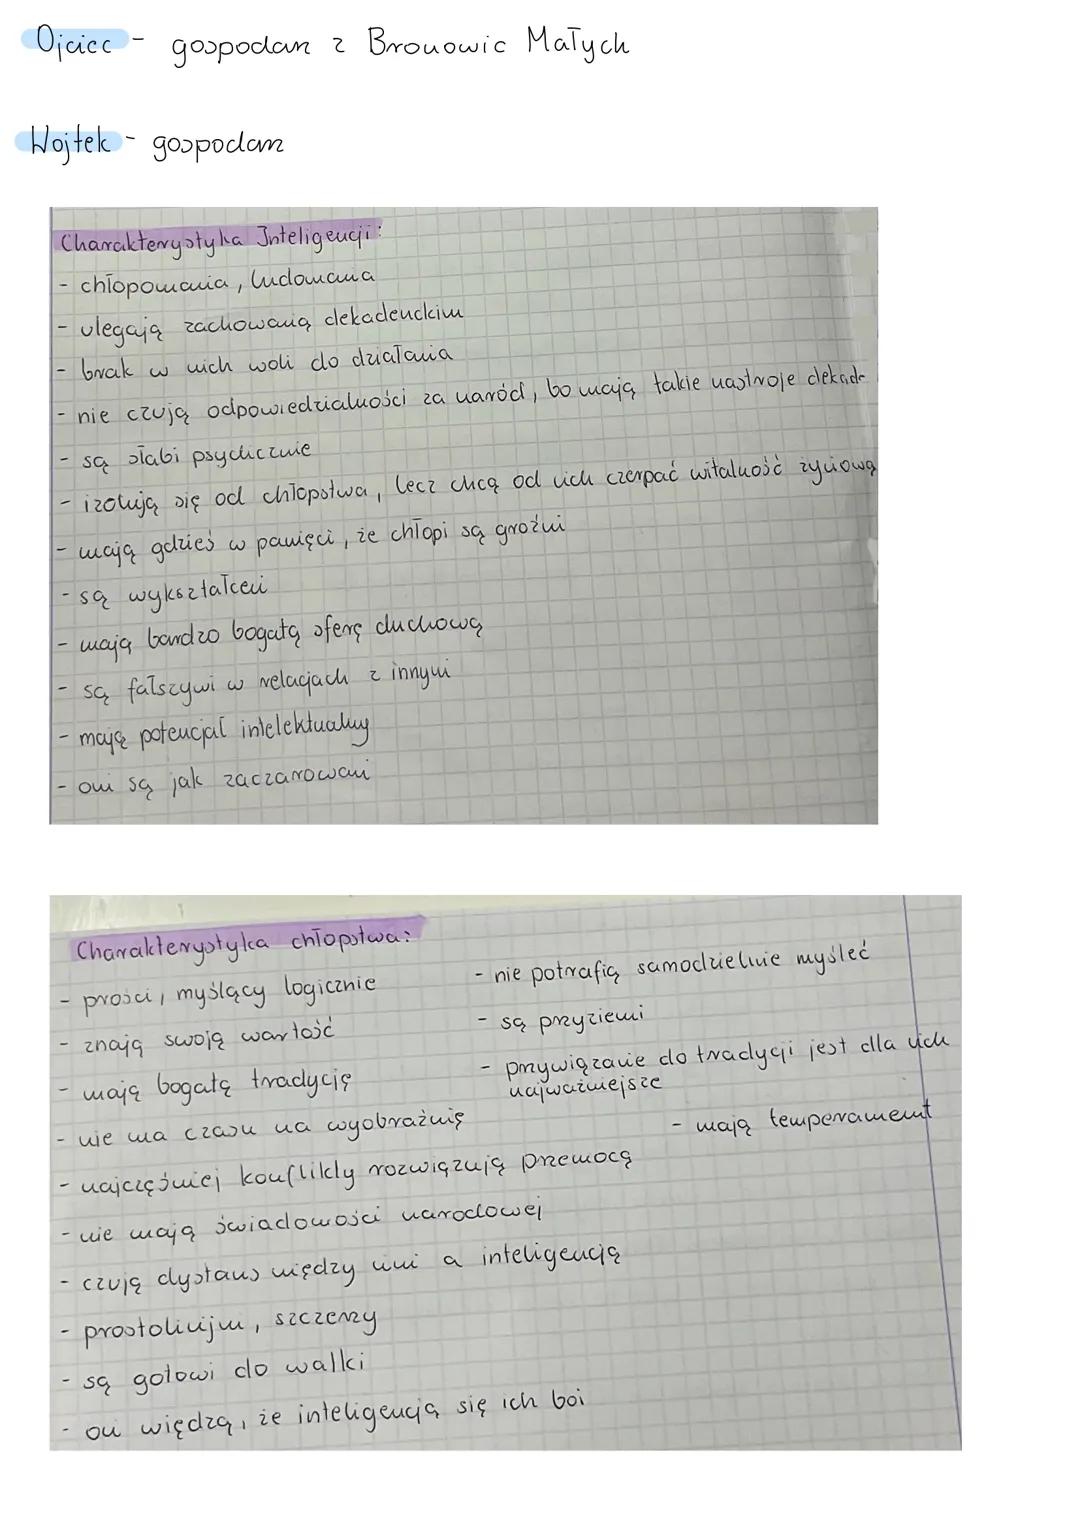 Ojciec - gospodarz z Bronowic Małych
Wojtek - gospodarz
Charakterystyka Inteligencji:
- chłopomania, ludomania
- ulegają zachowaną dekadenckim
- brak w nich woli do działania
- nie czują odpowiedzialności za naród, bo mają takie nastroje dekade
- są słabi psychicznie
- izolują się od chłopstwa, lecz chcą od nich czerpać witalność życiową
- mają gdzieś w pamięci, że chłopi są groźni
- są wykształceni
- mają bardzo bogatą sferę duchową
- są fałszywi w relacjach z innymi
- mają potencjał intelektualny
- oni są jak zaczarowani
Charakterystyka chłopstwa:
- prości, myślący logicznie
- znają swoją wartość
- mają bogatą tradycję
- nie ma czasu na wyobraźnię
- najczęściej konflikty rozwiązują przemocą
- nie mają świadomości narodowej
- czują dystans między nimi a inteligencją
- prostolinijni, szczerzy
- są gotowi do walki
- oni więdzą, że inteligencja się ich boi
- nie potrafią samodzielnie myśleć
- są przyziemi
- przywiązanie do tradycji jest dla nich
najważniejsze
- mają temperament